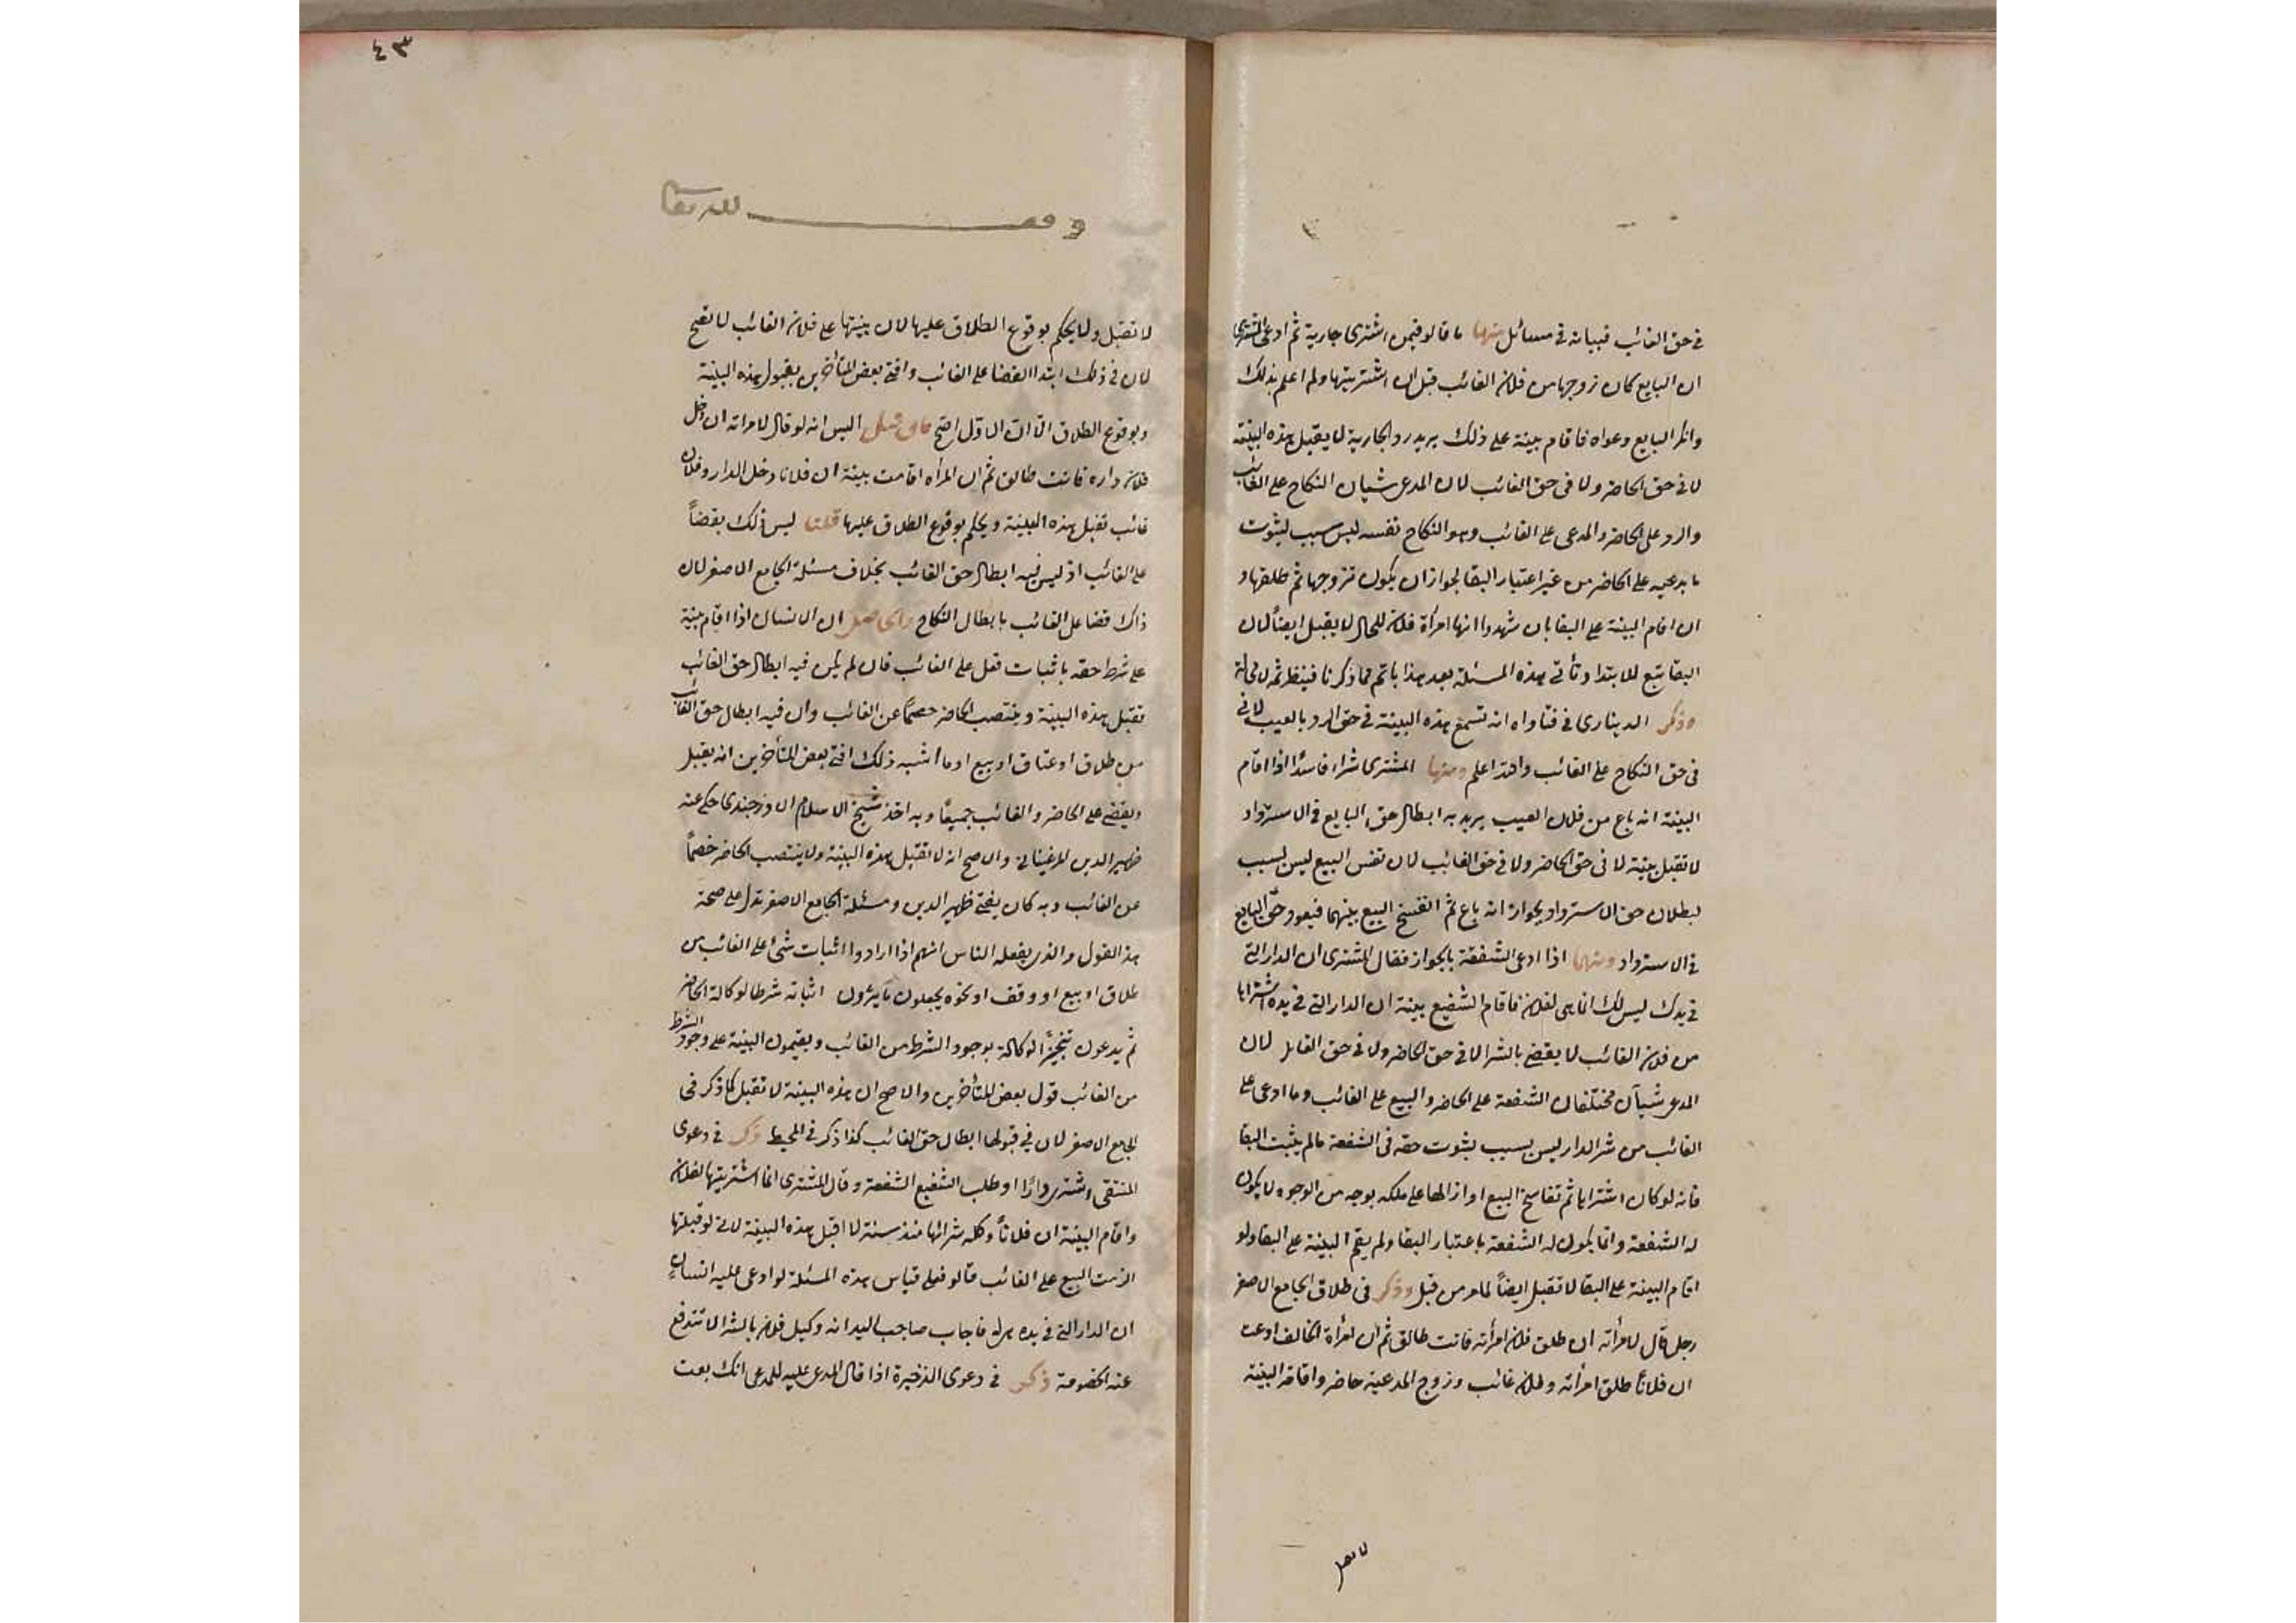 في حق الغائب فبيانه في مسائل منها ما قالو فيمن اشترى جارية ثم ادعى المشترى
ان البايع كان زوجها من فلان الغائب قبل ان اشتريتها ولم اعلم بذلك
وانكر البايع دعواه فاقام بينة على ذلك يريد رد الجارية لا يقبل هذه البينة
لا في حق الحاضر ولا في حق الغائب لان المدعى شيان النكاح على الغائب
والرد على الحاضر والمدعى على الغائب وهو النكاح نفسه ليس سبب لثبوت
ما يدعيه على الحاضر من غير اعتبار البقا لجواز ان يكون تزوجها ثم طلقها و
ان اقام البينة على البقا بان شهدوا انها امرأة فلان للحال لا يقبل ايضاً لان
البقا تبع للابتدا وتأتى هذه المسئلة بعد هذا باتم مما ذكرنا فينظر ثمه لا محالة
وذكر الدينارى في فتاواه انه تسمع هذه البينة في حق الرد بالعيب لا في
في حق النكاح على الغائب والله اعلم ومنها المشترى شراء فاسدًا اذا اقام
البينة انه باع من فلان الغيب يريد به ابطال حق البايع في الاسترداد
لا تقبل بينة لا في حق الحاضر ولا في حق الغائب لان نفس البيع ليس بسبب
لبطلان حق الاسترداد بجواز انه باع ثم انفسخ البيع بينهما فيعود حق البايع
في الاسترداد ومنها اذا ادعى الشفعة بالجواز فقال المشترى ان الدار التي
في يدك ليس لك انما هى لفلان فاقام الشفيع بينة ان الدار التي في يده اشتراها
من فلان الغائب لا يقضي بالشرا لا في حق الحاضر ولا في حق الغائب لان
المدعى شيآن مختلفان الشفعة على الحاضر والبيع على الغائب وما ادعى على
الغائب من شر الدار ليس بسبب لثبوت حقه في الشفعة مالم يثبت البقا
فانه لو كان اشتراها ثم تفاسخ البيع او ازالها على ملكه بوجه من الوجوه لا يكون
له الشفعة وانما يكون له الشفعة باعتبار البقا ولم يقم البينة على البقا ولو
اقام البينة على البقا لا تقبل ايضاً لما مر من قبل وذكر في طلاق الجامع الاصغر
رجل قال لامرأته ان طلق فلان امرأته فانت طالق ثم ان امرأة الحالف ادعت
ان فلانًا طلق امرأته وفلان غائب وزوج المدعية حاضر واقامة البينة
لا تقبل
٤٣
وقف لله تعالى
لا تقبل ولا يحكم بوقوع الطلاق عليها لان بينتها على فلان الغائب لا تصح
لان في ذلك ابتدا القضا على الغائب وافتى بعض المتأخرين بقبول هذه البينة
وبوقوع الطلاق الا ان الاول اصح فان قيل اليس انه لو قال لامراته ان دخل
فلان داره فانت طالق ثم ان المرأه اقامت بينة ان فلانا دخل الدار وفلان
غائب تقبل هذه البينة ويحكم بوقوع الطلاق عليها قلنا ليس ذلك بقضاً
على الغائب اذ ليس فيه ابطال حق الغائب بخلاف مسئلة الجامع الاصغر لان
ذاك قضا على الغائب بابطال النكاح والحاصل ان الانسان اذا اقام بينة
على شرط حقه باثبات فعل على الغائب فان لم يكن فيه ابطال حق الغائب
تقبل هذه البينة وينتصب الحاضر خصماً عن الغائب وان فيه ابطال حق الغائب
من طلاق او عتاق او بيع او ما اشبه ذلك افتى بعض المتأخرين انه يقبل
ويقضى على الحاضر والغائب جميعًا وبه اخذ شيخ الاسلام الاوزجندى حكى عنه
ظهير الدين المرغينانى والاصح انه لا تقبل هذه البينة ولا ينتصب الحاضر خصماً
عن الغائب وبه كان يفتى ظهير الدين ومسئلة الجامع الاصغر تدل على صحة
هذا القول والذى يفعله الناس انهم اذا ارادوا اثبات شئ على الغائب من
طلاق او بيع او وقف او نحوه يجعلون ما يرون اثباته شرطا لوكالة الحاضر
ثم يدعون تنجيز الوكالة بوجود الشرط من الغائب ويقيمون البينة على وجود الشرط
من الغائب قول بعض المتأخرين والاصح ان هذه البينة لا تقبل كما ذكر في
الجامع الاصغر لان في قبولها ابطال حق الغائب كذا ذكر في المحيط ذكر في دعوى
المنتقى اشترى دارًا وطلب الشفيع الشفعة وقال المشترى انما اشتريتها لفلان
واقام البينة ان فلاناً وكله شرائها منذ سنة لا اقبل هذه البينة لانى لو قبلتها
الزمت البيع على الغائب قالو فعلى قياس هذه المسئلة لو ادعى عليه انسان
ان الدار التي في يده له فاجاب صاحب اليد انه وكيل فلان بالشرا لا تندفع
عنه الخصومة ذكر في دعوى الذخيرة اذا قال المدعى عليه للمدعى انك بعت